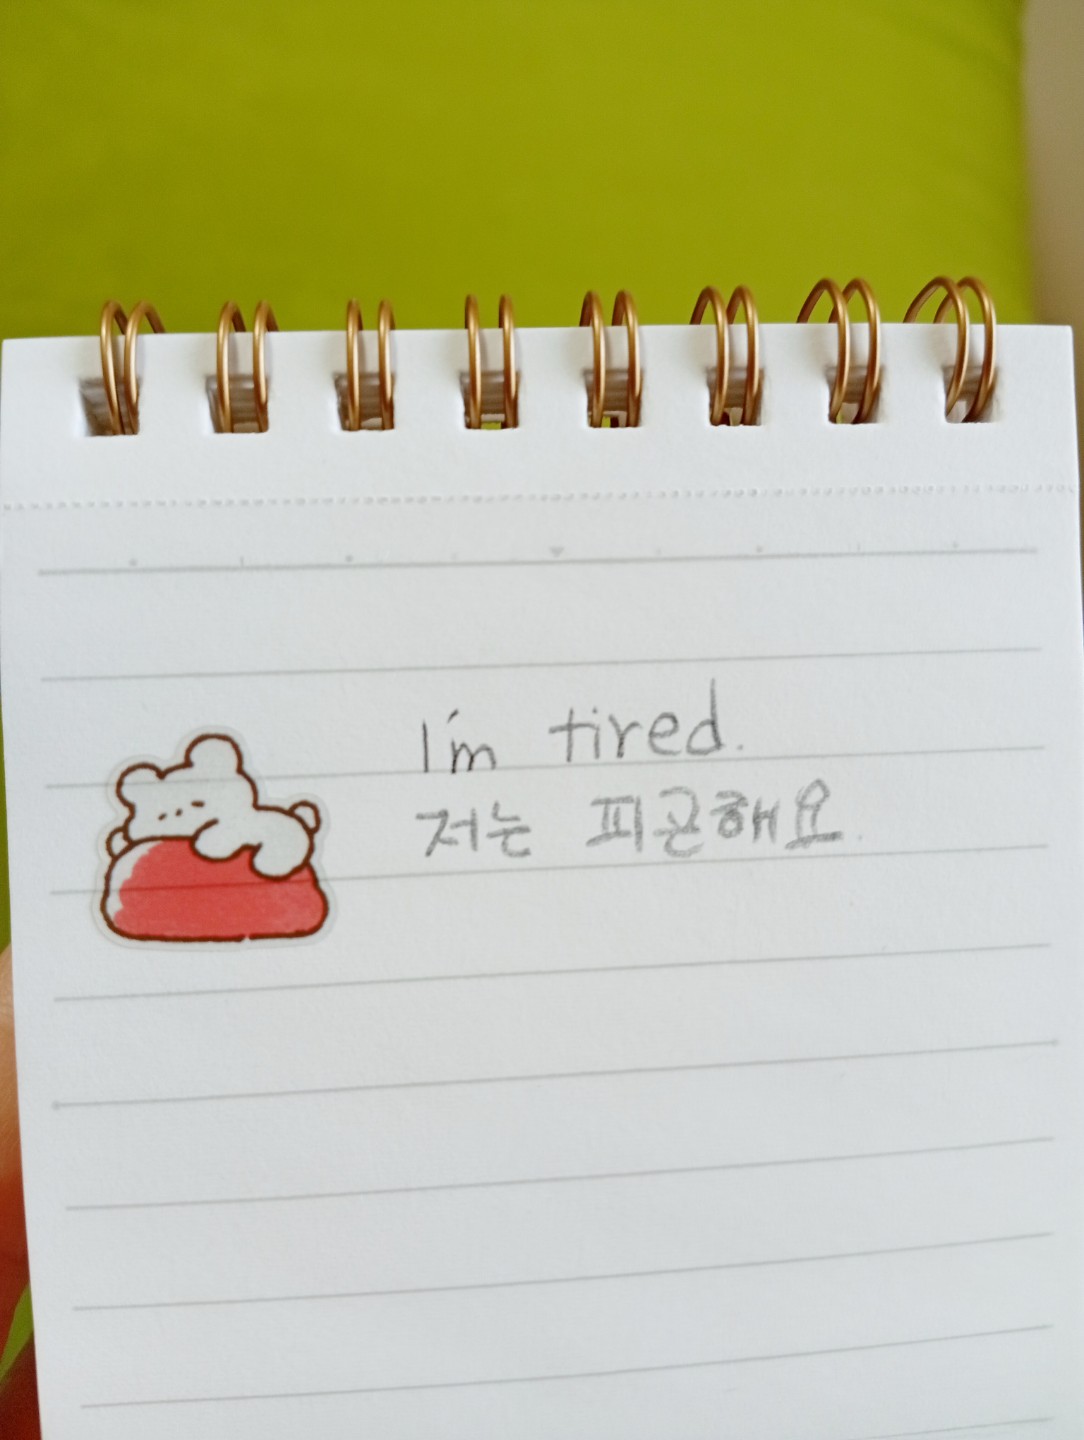 I'm tired.
저는 피곤해요.